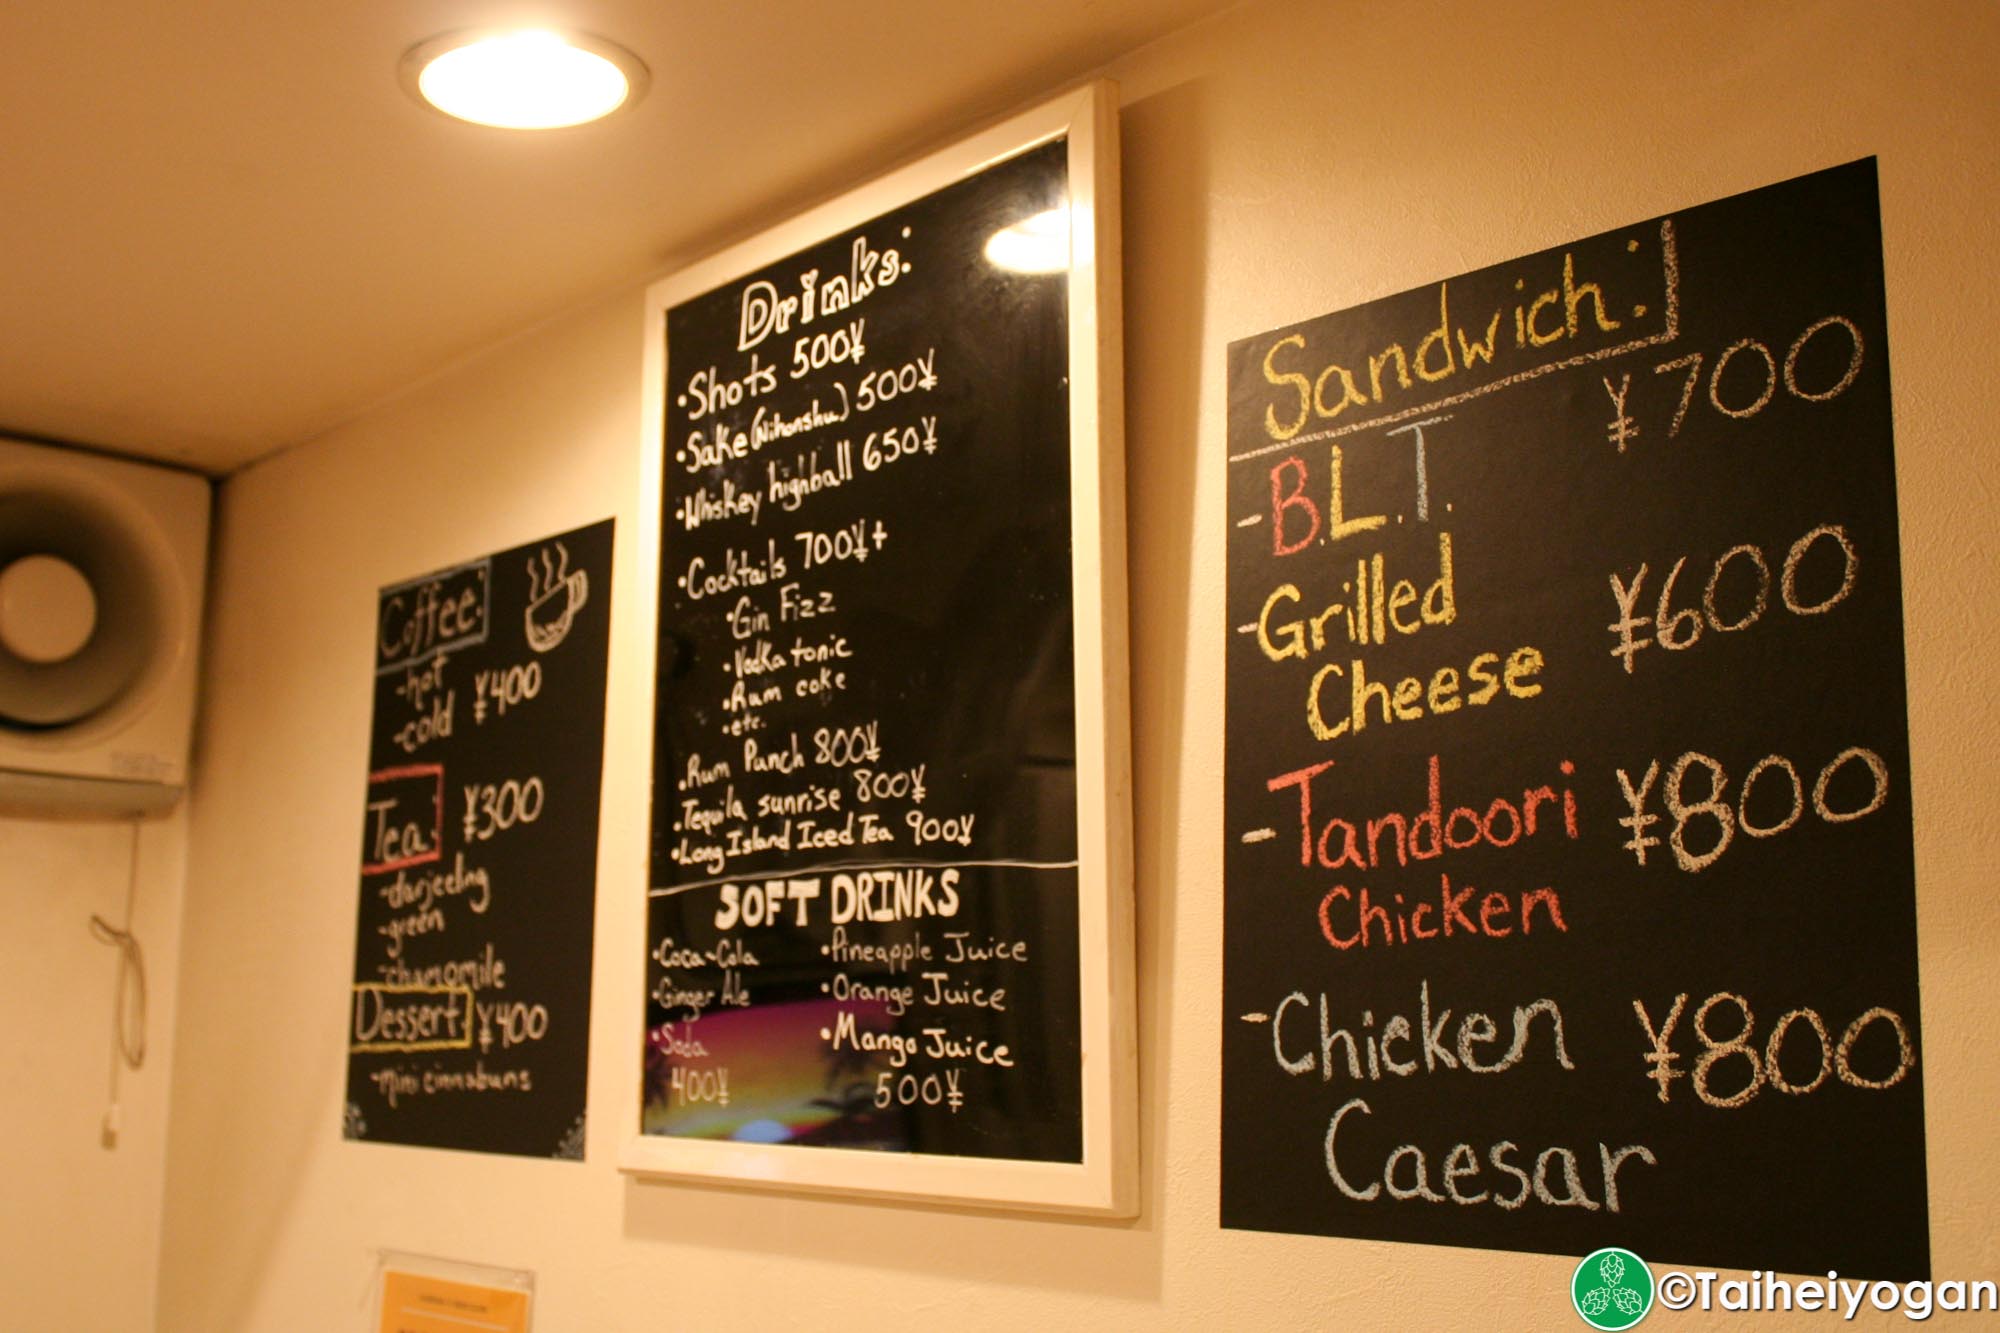 Coffee:
-hot
-cold ¥400
Tea: ¥300
-darjeeling
-green
-chamomile
Dessert: ¥400
-mini cinnabuns
Drinks:
•Shots 500¥
•Sake (Nihonshu) 500¥
•Whiskey highball 650¥
•Cocktails 700¥+
•Gin Fizz
•Vodka tonic
•Rum coke
•etc.
•Rum Punch 800¥
•Tequila sunrise 800¥
•Long Island Iced Tea 900¥
SOFT DRINKS
•Coca-Cola
•Ginger Ale
•Soda
400¥
•Pineapple Juice
•Orange Juice
•Mango Juice
500¥
Sandwich:
-B.L.T. ¥700
-Grilled
Cheese ¥600
-Tandoori
Chicken ¥800
-Chicken
Caesar ¥800
©Taiheiyogan